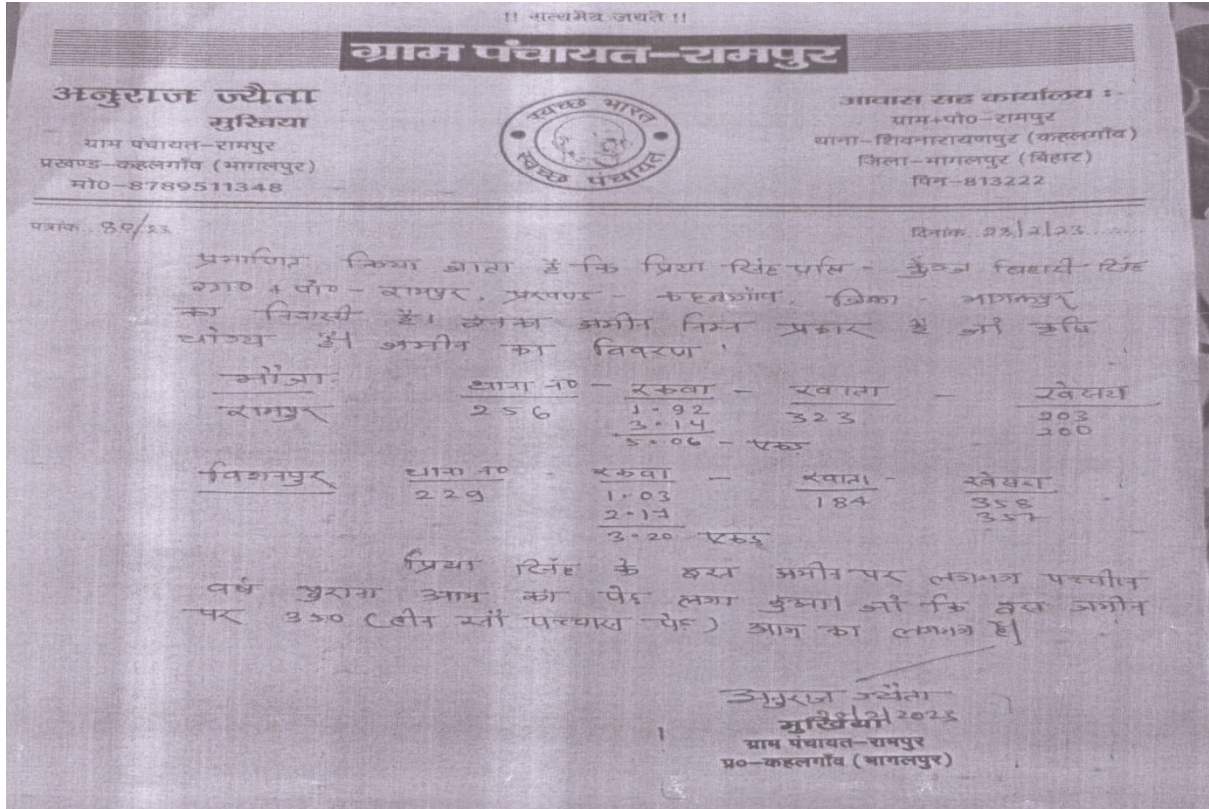 !! सत्यमेव जयते !!
ग्राम पंचायत–रामपुर
अनुराज ज्यैता
मुखिया
ग्राम पंचायत–रामपुर
प्रखण्ड–कहलगाँव (भागलपुर)
मो0–8789511348
स्वच्छ भारत
स्वच्छ पंचायत
आवास सह कार्यालय :-
ग्राम+पो0–रामपुर
थाना–शिवनारायणपुर (कहलगाँव)
जिला–भागलपुर (बिहार)
पिन–813222
पत्रांक
दिनांक 23/2/23
प्रमाणित किया जाता है कि प्रिया सिंह पति - बिहारी सिंह
ग्रा0 + पो0 - रामपुर, प्रखण्ड - कहलगाँव, जिला - भागलपुर
का निवासी है। इनका जमीन निम्न प्रकार है जो कृषि
योग्य है। जमीन का विवरण '
मौजा थाना न0 - रकवा - खाता - खेसरा
रामपुर 256 1.92 323 203
3.14 200
5.06 - एकड़
विशनपुर थाना न0 - रकवा - खाता - खेसरा
229 1.03 184
2.17 357
3.20 एकड़
प्रिया सिंह के इस जमीन पर लगभग पच्चीस
वर्ष पुराना आम का पेड़ लगा हुआ। जो कि इस जमीन
पर 350 (तीन सौ पच्चास पेड़) आम का लगभग है|
अनुराज ज्यैता
2023
मुखिया
ग्राम पंचायत–रामपुर
प्र०–कहलगाँव (भागलपुर)